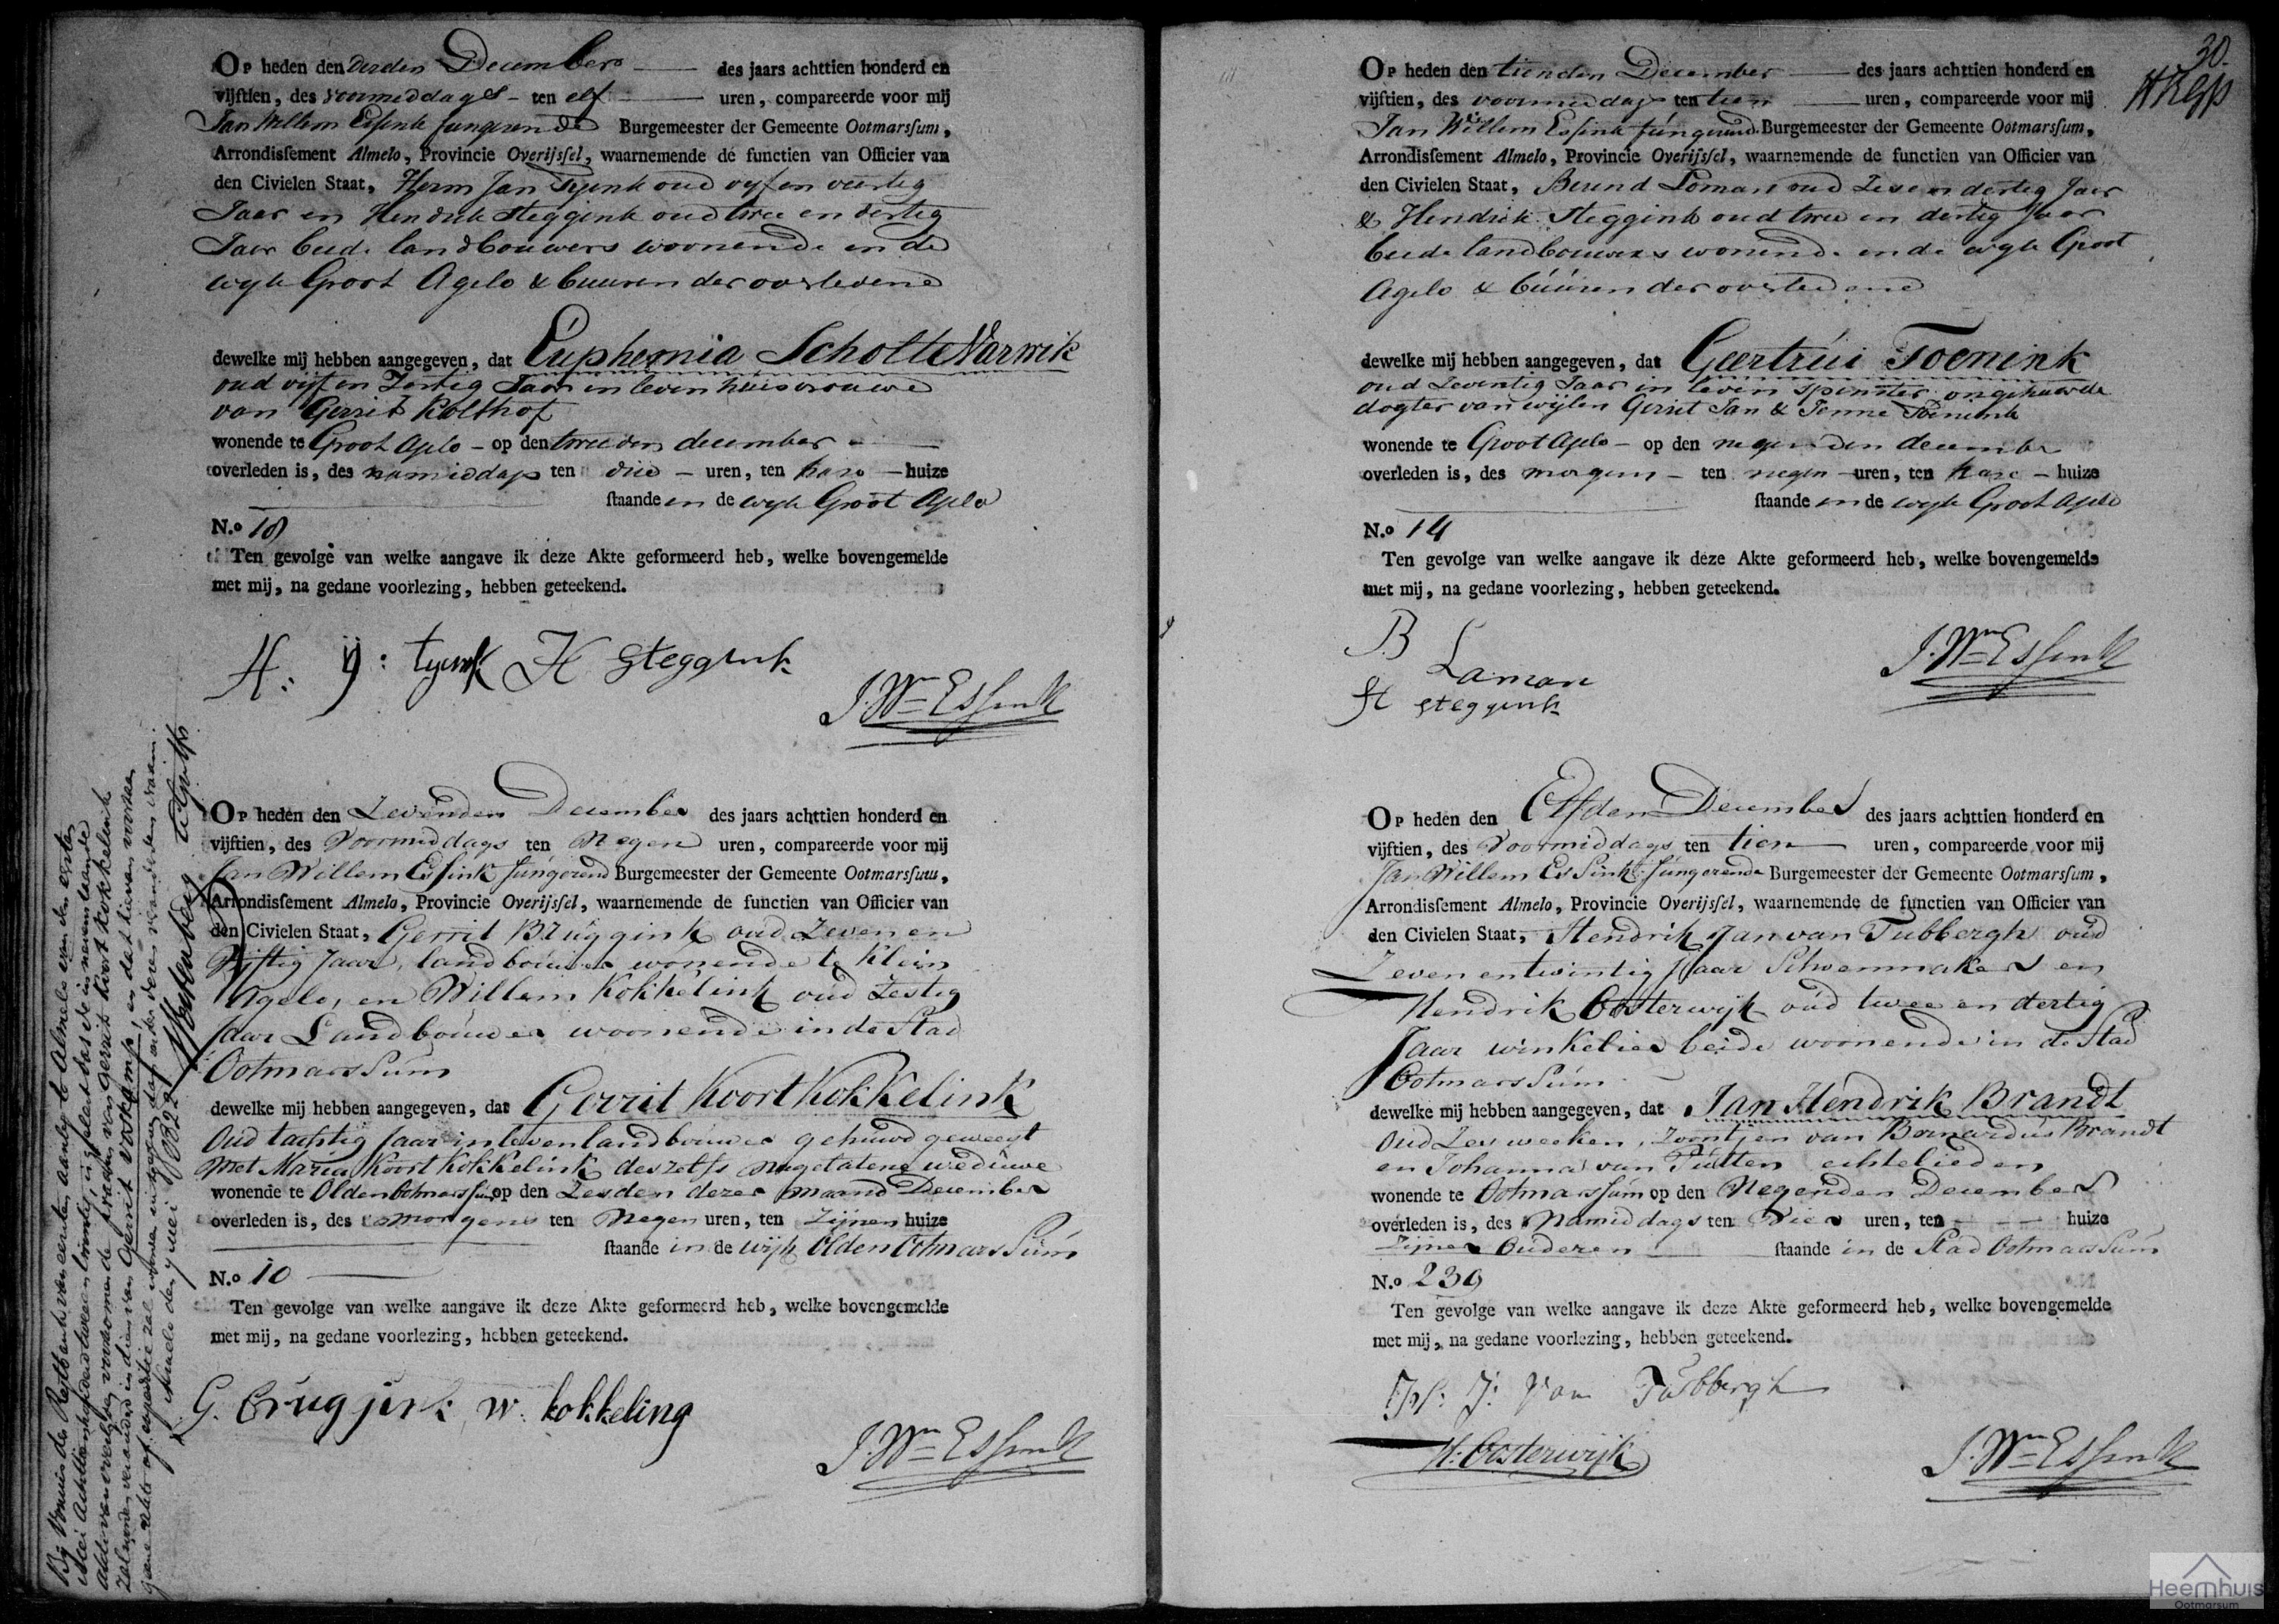 Op heden den derden December des jaars achttien honderd en
vijftien, des voormiddags ten elf uren, compareerde voor mij
Jan Willem Essink fungerende Burgemeester der Gemeente Ootmarssum,
Arrondissement Almelo, Provincie Overijssel, waarnemende de functien van Officier van
den Civielen Staat, Herm Jan Tyink oud vyf en veertig
Jaar en Hendrik Steggink oud twee en dertig
Jaar beide landbouwers woonende in de
wyk Groot Agelo & buuren der overledene
dewelke mij hebben aangegeven, dat Euphemia Scholte Varwik
oud vyf en Zestig Jaar in leven huisvrouwe
van Gerrit Kolthof
wonende te Groot Agelo op den tweeden december
overleden is, des namiddags ten drie uren, ten hare huize
staande in de wyk Groot Agelo
N.o 18
Ten gevolge van welke aangave ik deze Akte geformeerd heb, welke bovengemelde
met mij, na gedane voorlezing, hebben geteekend.
H: J: tyink H steggink
J. Wm Essink
Op heden den Zevenden December des jaars achttien honderd en
vijftien, des Voormiddags ten Negen uren, compareerde voor mij
Jan Willem Essink fungerend Burgemeester der Gemeente Ootmarssum,
Arrondissement Almelo, Provincie Overijssel, waarnemende de functien van Officier van
den Civielen Staat, Gerrit Bruggink oud Zeven en
Vijftig Jaar, landbouwer wonende te Klein
Agelo, en Willem Kokkelink oud Zestig
Jaar Landbouwer woonende in de Stad
Ootmarssum
dewelke mij hebben aangegeven, dat Gerrit Koort Kokkelink
Oud tachtig Jaar in leven landbouwer gehuwd geweest
met Maria Koort Kokkelink deszelfs nagelatene weduwe
wonende te Olden Ootmarssum op den Zesden dezer maand December
overleden is, des smorgens ten Negen uren, ten Zijnen huize
staande in de wijk Olden Ootmarssum
N.o 10
Ten gevolge van welke aangave ik deze Akte geformeerd heb, welke bovengemelde
met mij, na gedane voorlezing, hebben geteekend.
G. Brugjink w: kokkeling
J. Wm Essink
Bij Vonnis der Regtbank van eersten aanleg te Almelo van den eersten
Mei Achttienhonderd tweeentwintig, is gelast dat de in nevenstaande
Akte van overlijden voorkomende van Gerrit Koort Kokkelink
zal worden veranderd in dien van Gerrit Voskamp, en dat hiervan voortaan
geene Akte of expeditie zal worden uitgegeven dan onder deze veranderden naam.
Almelo den 7 Mei 1822
30.
Op heden den tienden December des jaars achttien honderd en
vijftien, des voormiddags ten tien uren, compareerde voor mij
Jan Willem Essink fungerend Burgemeester der Gemeente Ootmarssum,
Arrondissement Almelo, Provincie Overijssel, waarnemende de functien van Officier van
den Civielen Staat, Berend Loman oud Zes en dertig Jaar
& Hendrik Steggink oud twee en dertig Jaar
beide landbouwers wonende in de wyk Groot
Agelo & buuren der overledene
dewelke mij hebben aangegeven, dat Geertrui Toenink
oud Zeventig Jaar in leven spinster ongehuwde
dogter van wijlen Gerrit Jan & Jenne Toenink
wonende te Groot Agelo op den negenden december
overleden is, des morgens ten negen uren, ten hare huize
staande in de wyk Groot Agelo
N.o 14
Ten gevolge van welke aangave ik deze Akte geformeerd heb, welke bovengemelde
met mij, na gedane voorlezing, hebben geteekend.
B Laman
H steggink
J. Wm Essink
Op heden den Elfden December des jaars achttien honderd en
vijftien, des Voormiddags ten tien uren, compareerde voor mij
Jan Willem Essink fungerende Burgemeester der Gemeente Ootmarssum,
Arrondissement Almelo, Provincie Overijssel, waarnemende de functien van Officier van
den Civielen Staat, Hendrik Jan van Tubbergh oud
Zeven entwintig Jaar Schoenmaker en
Hendrik Oosterwijk oud twee en dertig
Jaar winkelier beide woonende in de Stad
Ootmarssum
dewelke mij hebben aangegeven, dat Jan Hendrik Brandt
Oud Zes weeken, Zoontjen van Bernardus Brandt
en Johanna van Putten echtelieden
wonende te Ootmarssum op den Negenden December
overleden is, des Namiddags ten Vier uren, ten huize
Zijner Ouderen staande in de Stad Ootmarssum
N.o 239
Ten gevolge van welke aangave ik deze Akte geformeerd heb, welke bovengemelde
met mij, na gedane voorlezing, hebben geteekend.
H: J: Van Tubbergh
H: Oosterwijk
J. Wm Essink
Heemhuis
Ootmarsum